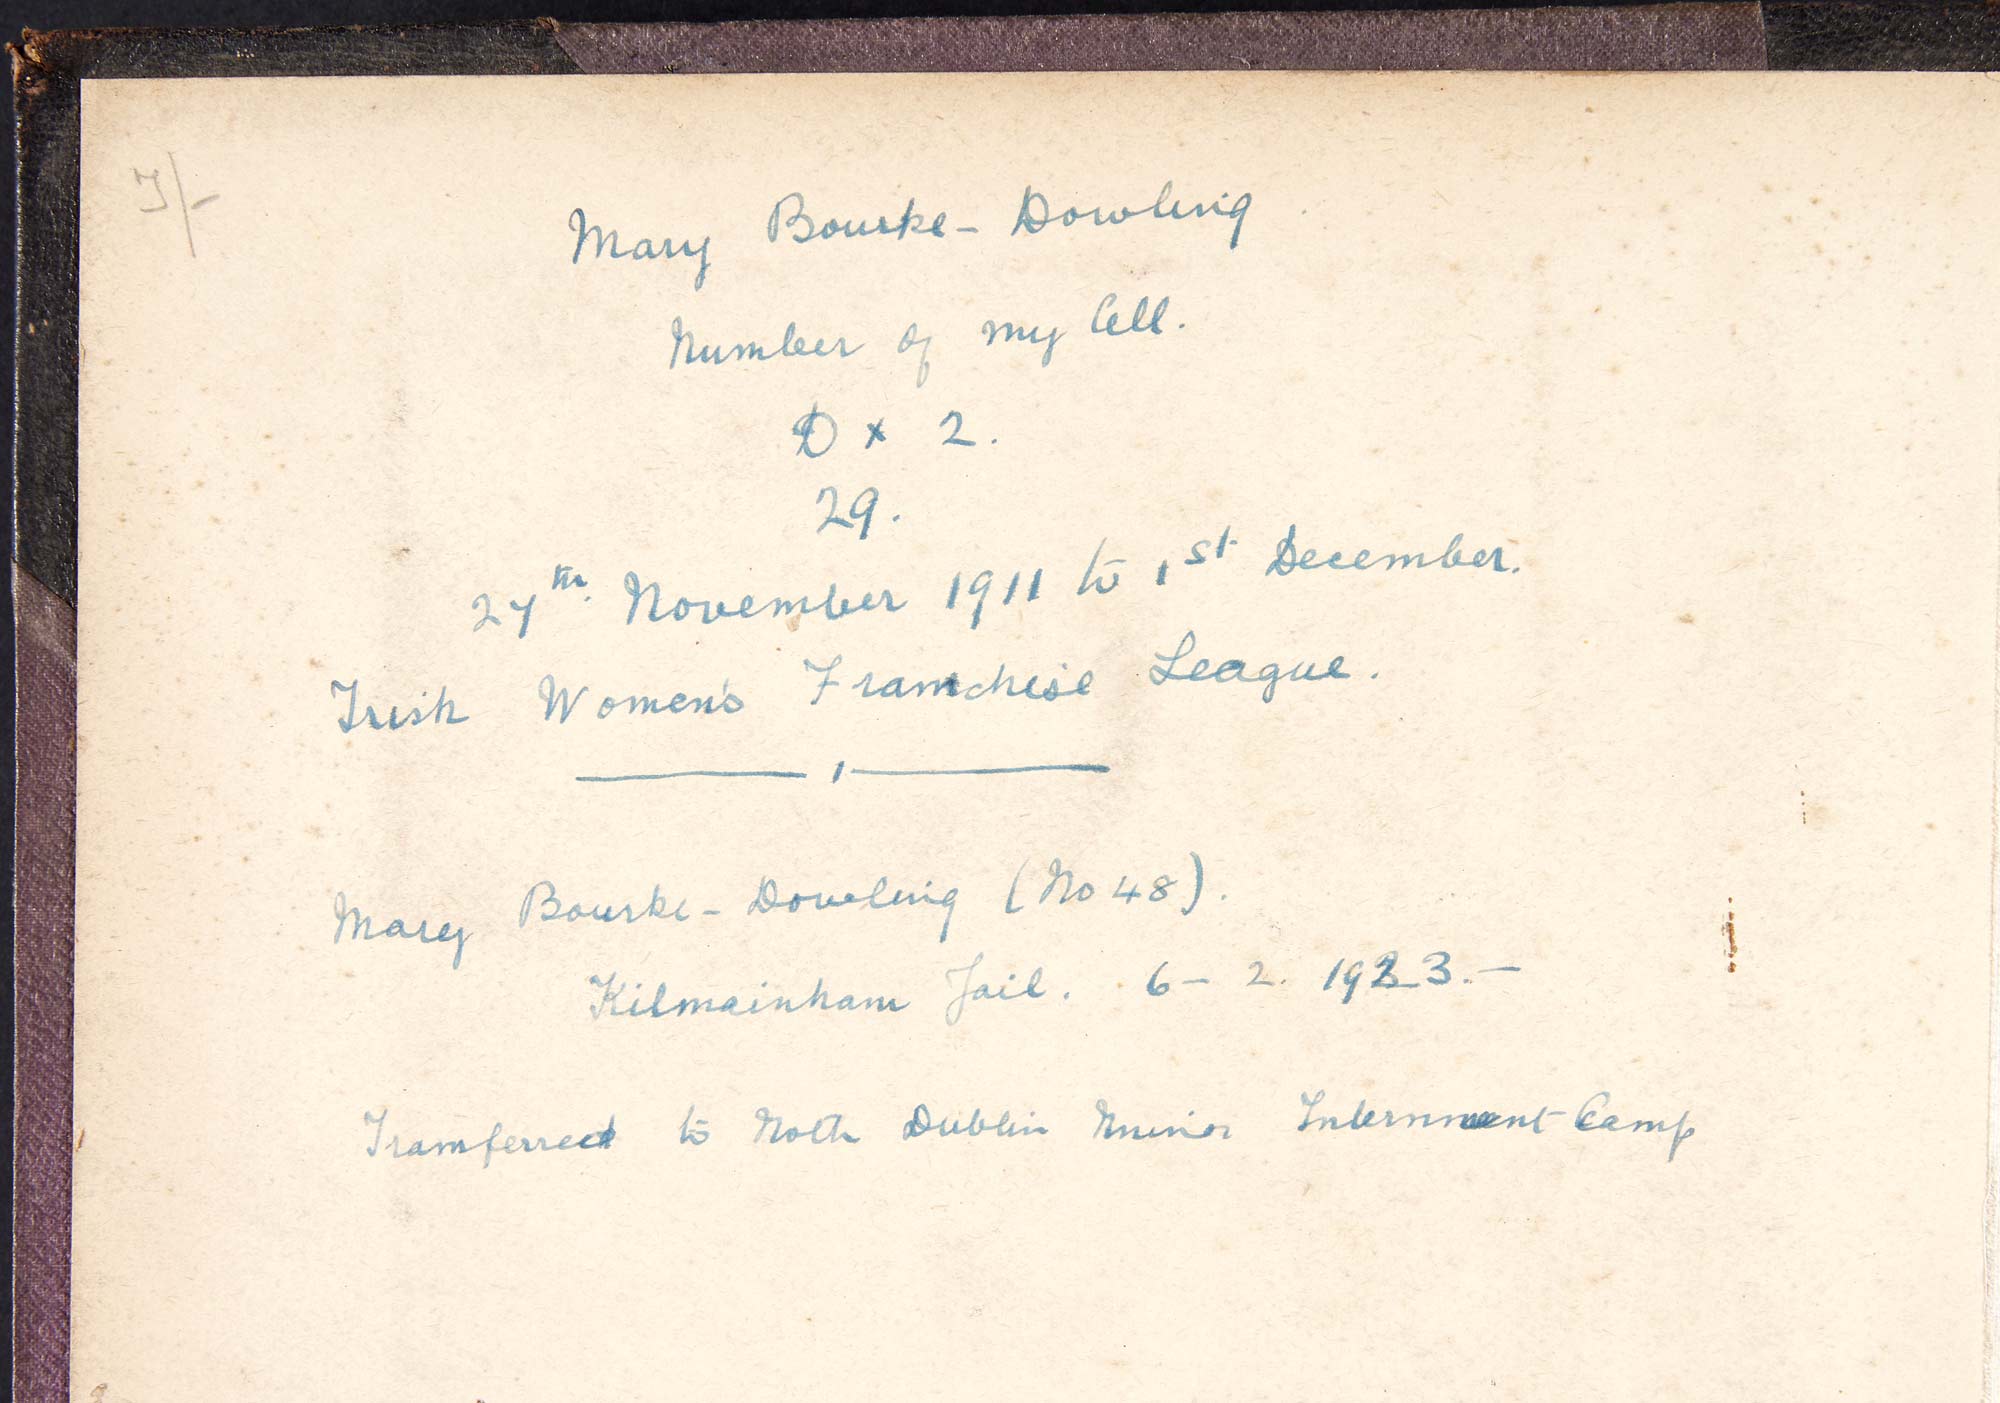 7/-
Mary Bourke-Dowling
Number of my Cell.
D x 2.
29.
27th. November 1911 to 1st December.
Irish Women's Franchise League.
Mary Bourke-Dowling (No 48).
Kilmainham Jail. 6 - 2. 1923. -
Transferred to Noth Dublin Internment Camp